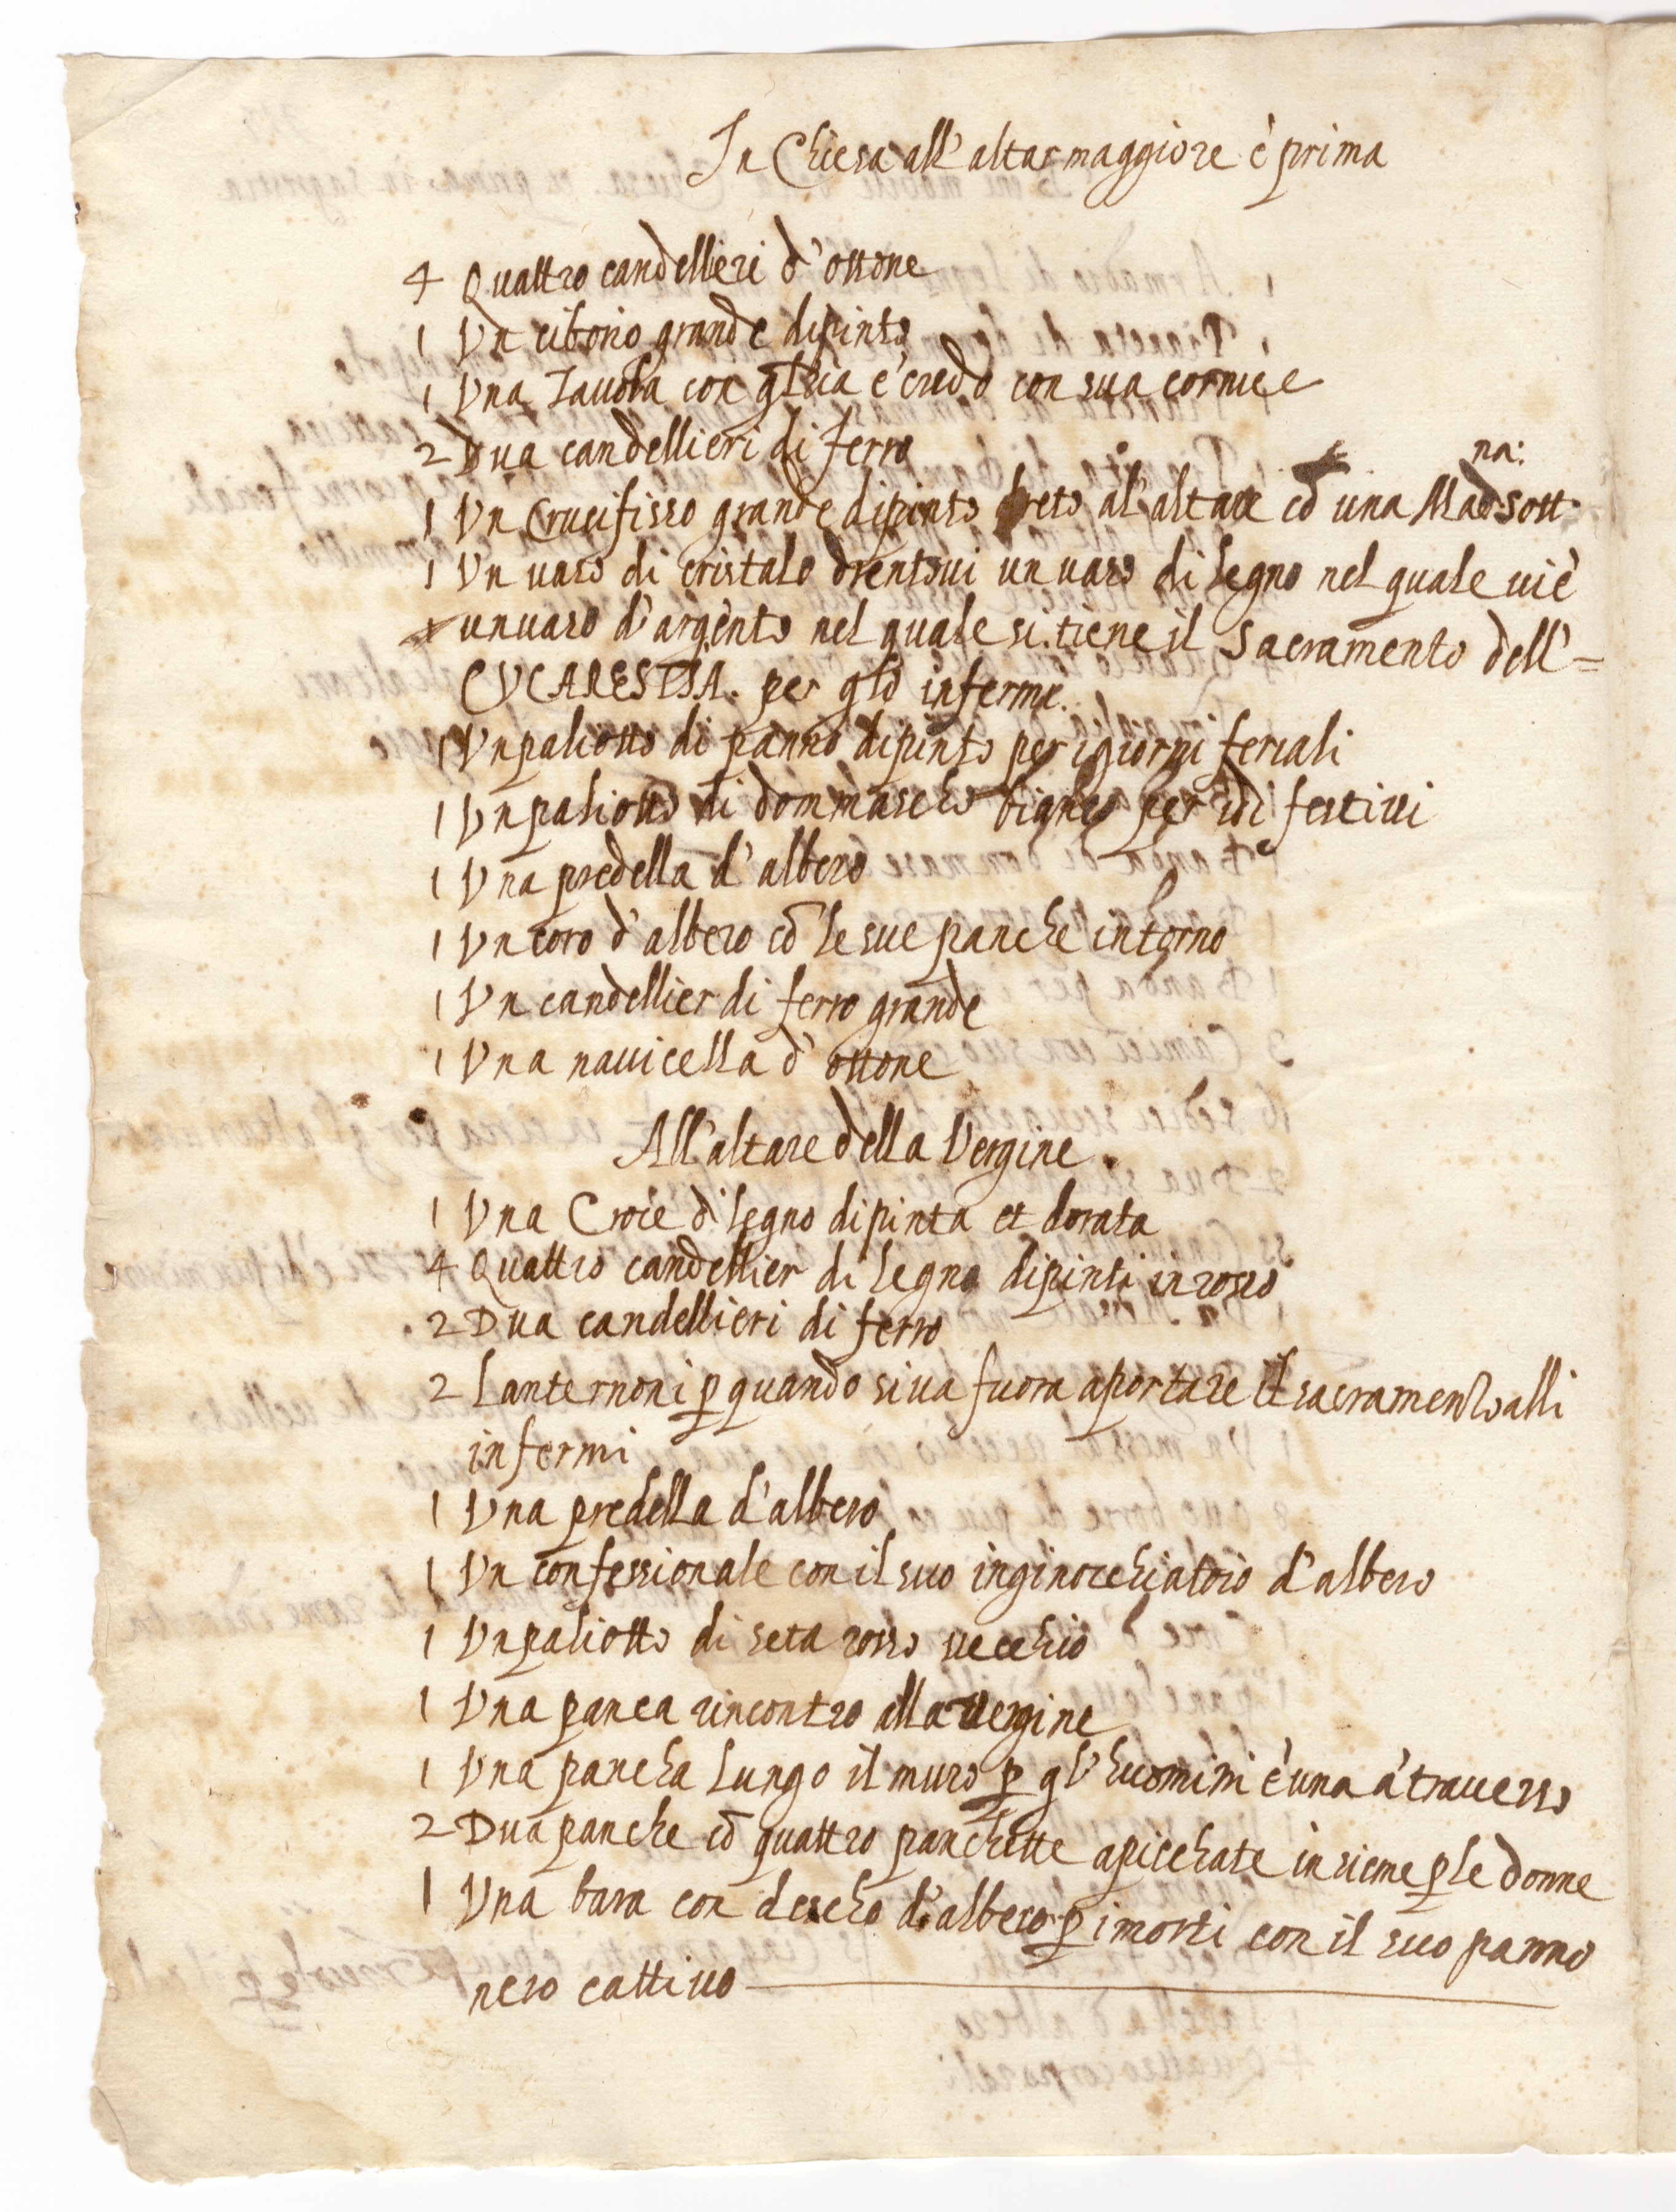 In Chiesa all' altar maggiore è prima
4 Quattro candellieri d' ottone
1 Vn ciborio grande dipinto
1 Vna Tauola con gloria è credo con sua cornice
2 Dua candellieri di ferro
na:
1 Vn Crucifisso grande dipinto dreto al' altare cō una Mad sott
1 Vn uaso di cristalo drentoui un uaso di legno nel quale ui è
un uaso d' argento nel quale si tiene il Sacramento dell' =
EVCARESTIA. per infermi.
1 Vn paliotto di panno dipinto per i giorni feriali
1 Vn paliotto di dommascho biancho per i dì festiui
1 Vna predella d' albero
1 Vn coro d' albero cō le sue panche intorno
1 Vn candellier di ferro grande
1 Vna nauicella d' ottone
All' altare della Vergine.
1 Vna Croce di legno dipinta et dorata
4 Quattro candellier di legno dipinti in rosso
2 Dua candellieri di ferro
2 Lanternoni p quando si ua fuora a portare il sacramento alli
infermi
1 Vna predella d' albero
1 Vn confessionale con il suo inginocchiatoio d' albero
1 Vn paliotto di seta rosso uecchio
1 Vna panca rincontro alla uergine
1 Vna pancha lungo il muro p gl' huomini è una à trauerso
2 Dua panche cō quattro panchette apicchate insieme p le donne
1 Vna bara con descho d' albero p i morti con il suo panno
nero cattiuo